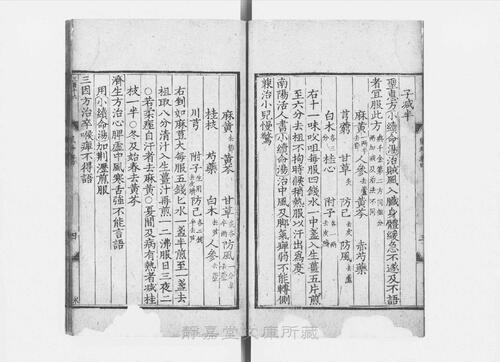 子減半
聖惠方小續命湯治賊風入臟身體緩急不遂及不語
者宜服此方
麻黃 人參去蘆 黃芩 赤芍藥
芎藭 甘草 防己 防風去蘆
白木 桂心 附子
右十一味㕮咀每服四錢水一中盞入生薑五片煎
至六分去柤不拘時候稍熱服以汗出爲度
南陽活人書小續命湯治中風及脚氣痺弱不能轉側
兼治小兒慢驚
麻黃 黃芩 甘草 防風
桂枝 芍藥 白木 人參
川芎 附子 防己
右剉如麻豆大每服五錢匕水一盞半煎至一盞去
柤取八分清汁入生薑汁再煎一二沸服日三夜二
○若柔痓自汗者去麻黃○夏間及病有熱者減桂
枝一半○冬及始春去黃芩
濟生方治心脾虛中風寒舌強不能言語
用小續命湯加荆瀝煎服
三因方治卒喉痺不得語
四
靜嘉堂文庫所藏